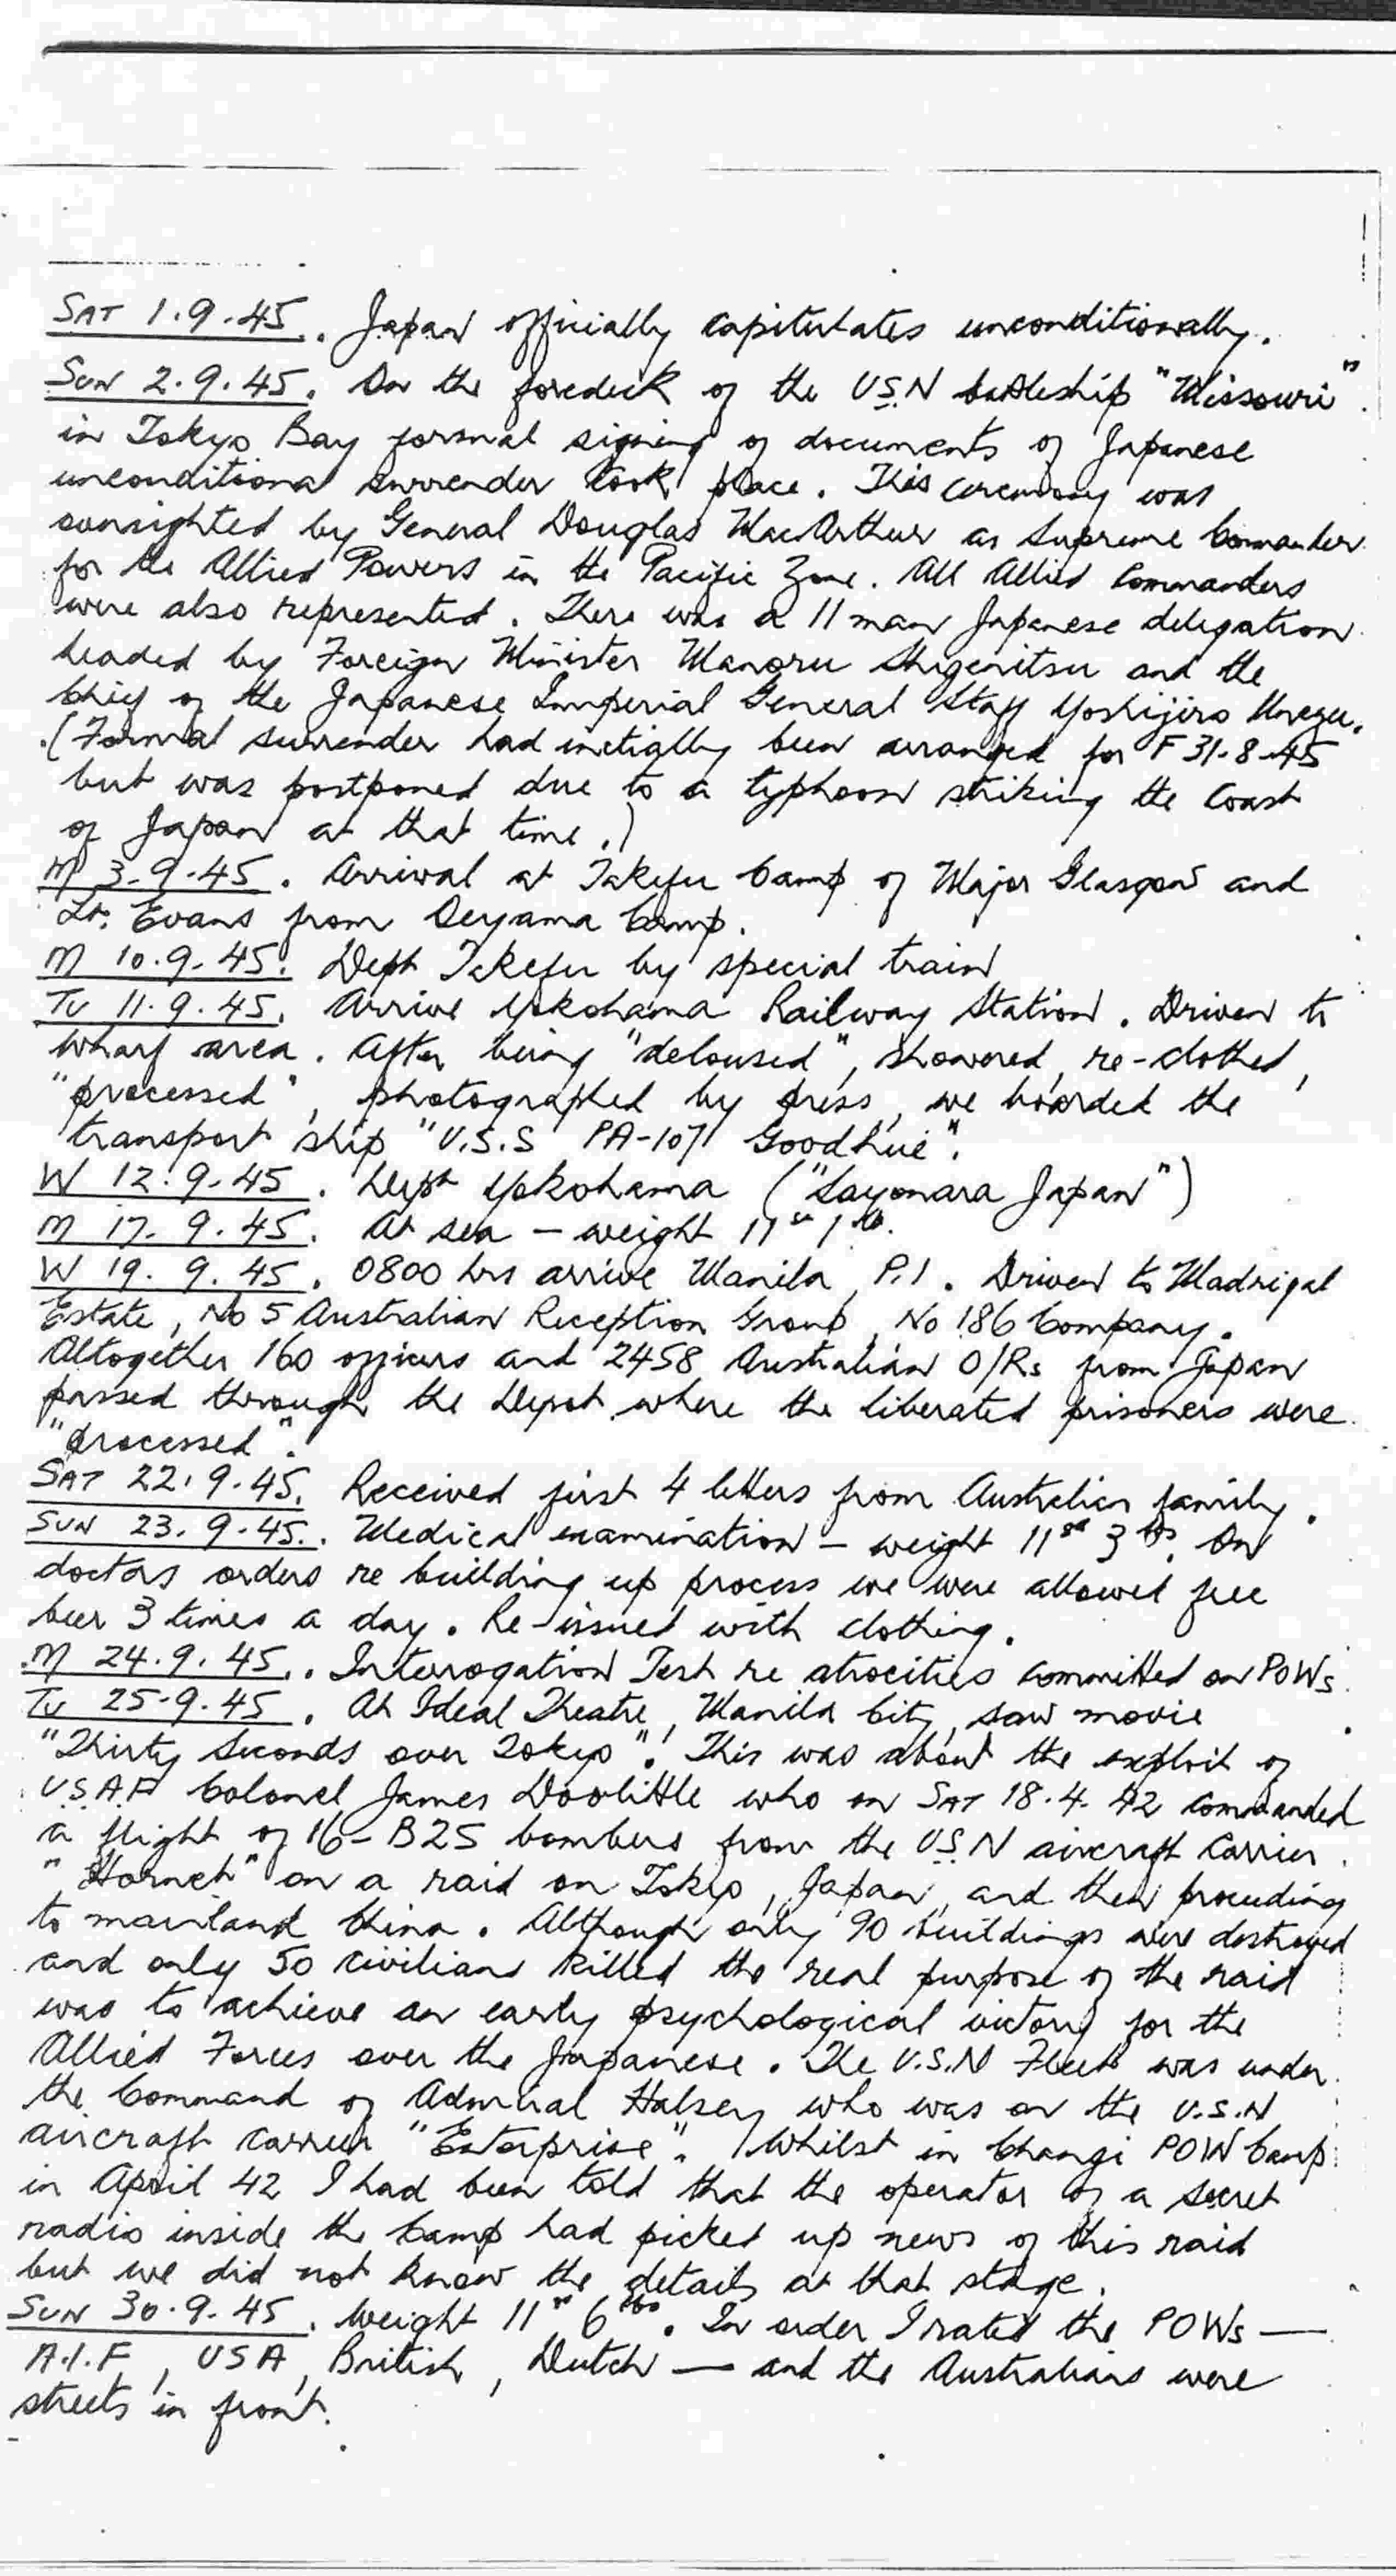 SAT 1.9.45. Japan officially capitulates unconditionally.
SUN 2.9.45. On the foredeck of the USN battleship "Missouri"
in Tokyo Bay formal signing of documents of Japanese
unconditional surrender took place. This ceremony was
oversighted by General Douglas MacArthur as Supreme Commander
for the Allied Powers in the Pacific Zone. All Allied Commanders
were also represented. There was a 11 man Japanese delegation
headed by Foreign Minister Manoru Shigenitsu and the
Chief of the Japanese Imperial General Staff Yoshijiro Umezu.
(Formal surrender had inetially been arranged for F 31-8-45
but was postponed due to a typhoon striking the Coast
of Japan at that time.)
M 3-9-45. Arrival at Takefu Camp of Major Glasgow and
Lt. Evans from Oeyama Camp.
M 10.9.45. Dept Takefu by special train
TU 11.9.45. Arrive Yokohama Railway Station. Driven to
wharf area. After being "deloused", showered, re-clothed,
"processed", photographed by press, we boarded the
transport ship "U.S.S PA-107 Goodhue".
W 12.9.45. Dept Yokohama ("Sayonara Japan")
M 17.9.45. At sea - weight 11st 1lb.
W 19.9.45. 0800 hrs arrive Manila, P.I. Driven to Madrigal
Estate, No 5 Australian Reception Group, No 186 Company.
Altogether 160 officers and 2458 Australian O/Rs from Japan
passed through the Depot where the liberated prisoners were
"processed".
SAT 22.9.45. Received first 4 letters from Australian family.
SUN 23.9.45. Medical examination - weight 11st 3lbs. On
doctors orders re building up process we were allowed free
beer 3 times a day. Re-issued with clothing.
M 24.9.45. Interrogation Test re atrocities committed on POWs.
TU 25-9.45. At Ideal Theatre, Manila City, saw movie
"Thirty Seconds over Tokyo". This was about the exploit of
U.S.A.F Colonel James Doolittle who on SAT 18.4.42 commanded
a flight of 16-B25 bombers from the USN aircraft Carrier
"Hornet" on a raid on Tokyo, Japan, and then proceeding
to mainland China. Although only 90 buildings were destroyed
and only 50 civilians killed the real purpose of the raid
was to achieve an early psychological victory for the
Allied Forces over the Japanese. The U.S.N Fleet was under
the Command of Admiral Halsey who was on the U.S.N
aircraft carrier "Enterprise". Whilst in Changi POW Camp
in April 42 I had been told that the operator of a secret
radio inside the Camp had picked up news of this raid
but we did not know the details at that stage.
SUN 30.9.45. Weight 11st 6lbs. In order I rated the POWs —
A.I.F, USA, British, Dutch — and the Australians were
streets in front.